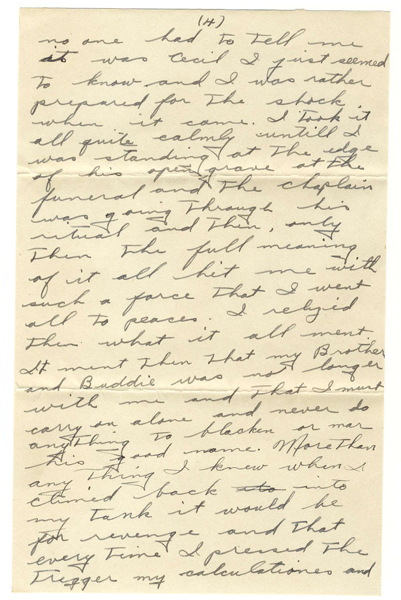 (4)
no one had to tell me
it was Cecil I just seemed
to know and I was rather
prepared for the shock
when it came. I took it
all quite calmly untill I
was standing at the edge
of his open grave at the
funeral and the chaplain
was going through his
ritual and then, only
then the full meaning
of it all hit me with
such a force that I went
all to peaces. I relizied
then what it all ment
It ment then that my Brother
and Buddie was not longer
with me and that I must
carry on alone and never do
anything to blacken or mar
his good name. More than
any thing I knew when I
climed back into
my tank it would be
for revenge and that
every time I pressed the
trigger my calculationes and